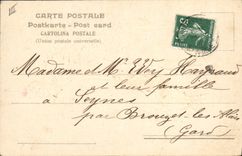 CARTE POSTALE
Postkarte - Post card
CARTOLINA POSTALE
(Union postale universelle)
Madame et Mr
et leur famille
à Seynes
par Brouzet les Alais
Gard